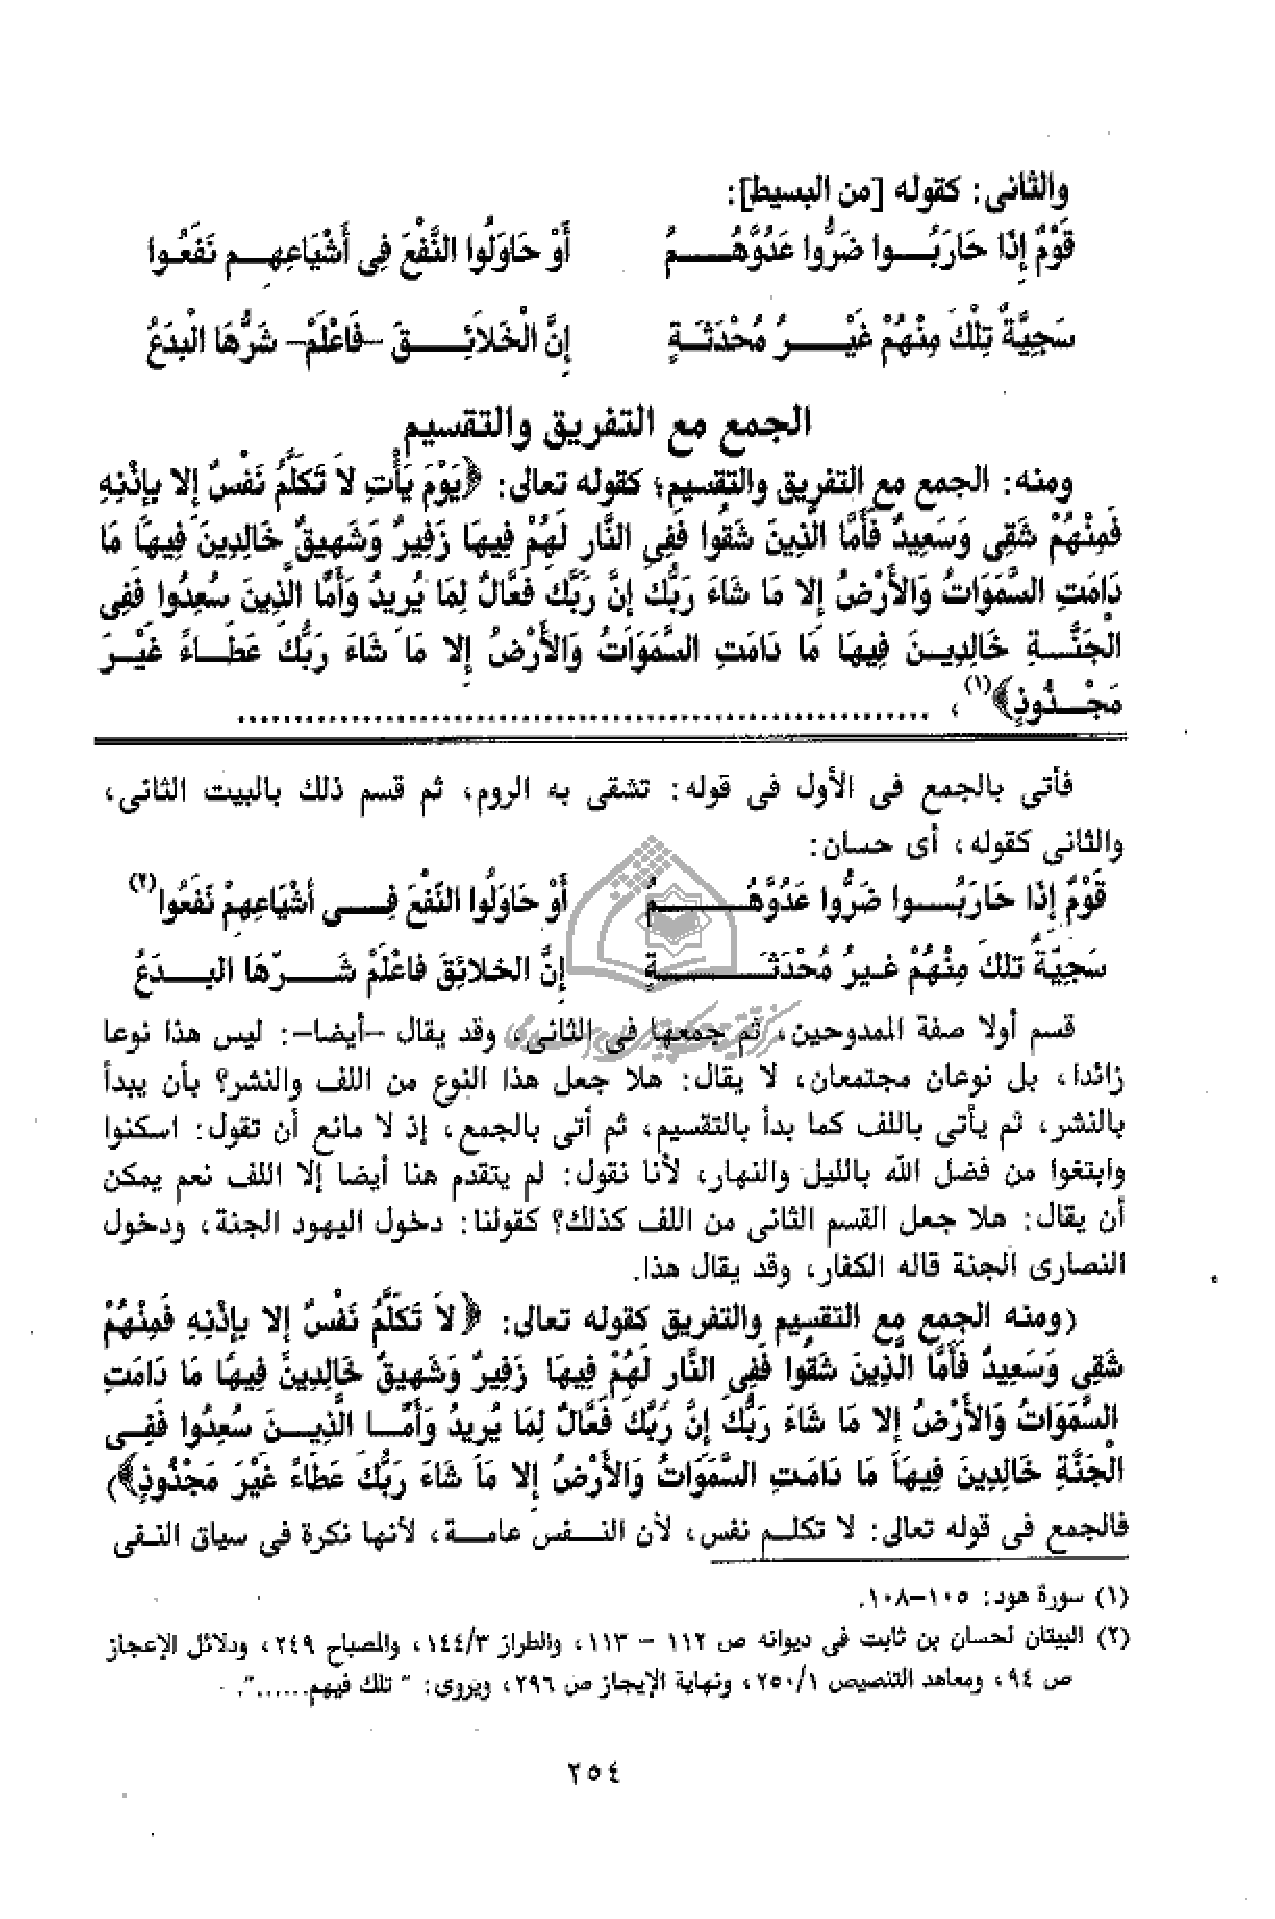 والثانى: كقوله [من البسيط]:
قَوْمٌ إِذَا حَارَبُـــوا ضَرُّوا عَدُوَّهُـــــمُ أَوْ حَاوَلُوا النَّفْعَ فِى أَشْيَاعِهِـــم نَفَعُـوا
سَجِيَّةٌ تِلْكَ مِنْهُمْ غَيْـــــرُ مُحْدَثَــةٍ إِنَّ الْخَلاَئِـــــقَ –فَاعْلَمْ– شَرُّهَا الْبِدَعُ
الجمع مع التفريق والتقسيم
ومنه: الجمع مع التفريق والتقسيم؛ كقوله تعالى: ﴿يَوْمَ يَأْتِ لاَ تَكَلَّمُ نَفْسٌ إلا بِإِذْنِهِ
فَمِنْهُمْ شَقِى وَسَعِيدٌ فَأَمَّا الَّذِينَ شَقُوا فَفِى النَّارِ لَهُمْ فِيهَا زَفِيرٌ وَشَهِيقٌ خَالِدِينَ فِيهَا مَا
دَامَتِ السَّمَوَاتُ وَالأَرْضُ إِلا مَا شَاءَ رَبُّكَ إِنَّ رَبَّكَ فَعَّالٌ لِمَا يُرِيدُ وَأَمَّا الَّذِينَ سُعِدُوا فَفِى
الْجَنَّـــةِ خَالِدِيـــنَ فِيهَا مَا دَامَتِ السَّمَوَاتُ وَالأَرْضُ إِلا مَا شَاءَ رَبُّكَ عَطَــاءً غَيْـــرَ
مَجْـــذُوذٍ﴾(١)، ..........................................................
فأتى بالجمع فى الأول فى قوله: تشقى به الروم، ثم قسم ذلك بالبيت الثانى،
والثانى كقوله، أى حسان:
قَوْمٌ إِذَا حَارَبُـــوا ضَرُّوا عَدُوَّهُـــــــمُ أَوْ حَاوَلُوا النَّفْعَ فِـــى أَشْيَاعِهِمْ نَفَعُوا(٢)
سَجِيّةٌ تلكَ مِنْهُمْ غـيرُ مُحْدَثَـــــــةٍ إِنَّ الخلائِقَ فاعْلَمْ شَـــرّهَا البـــدَعُ
قسم أولا صفة الممدوحين، ثم جمعها فى الثانى، وقد يقال –أيضا–: ليس هذا نوعا
زائدا، بل نوعان مجتمعان، لا يقال: هلا جعل هذا النوع من اللف والنشر؟ بأن يبدأ
بالنشر، ثم يأتى باللف كما بدأ بالتقسيم، ثم أتى بالجمع، إذ لا مانع أن تقول: اسكنوا
وابتغوا من فضل الله بالليل والنهار، لأنا نقول: لم يتقدم هنا أيضا إلا اللف نعم يمكن
أن يقال: هلا جعل القسم الثانى من اللف كذلك؟ كقولنا: دخول اليهود الجنة، ودخول
النصارى الجنة قاله الكفار، وقد يقال هذا.
(ومنه الجمع مع التقسيم والتفريق كقوله تعالى: ﴿لاَ تَكَلَّمُ نَفْسٌ إلا بِإِذْنِهِ فَمِنْهُمْ
شَقِى وَسَعِيدٌ فَأَمَّا الَّذِينَ شَقُوا فَفِى النَّارِ لَهُمْ فِيهَا زَفِيرٌ وَشَهِيقٌ خَالِدِينَ فِيهَا مَا دَامَتِ
السَّمَوَاتُ وَالأَرْضُ إِلا مَا شَاءَ رَبُّكَ إِنَّ رَبَّكَ فَعَّالٌ لِمَا يُرِيدُ وَأَمَّــا الَّذِيـــنَ سُعِدُوا فَفِــى
الْجَنَّةِ خَالِدِينَ فِيهَا مَا دَامَتِ السَّمَوَاتُ وَالأَرْضُ إِلا مَا شَاءَ رَبُّكَ عَطَاءً غَيْرَ مَجْذُوذٍ﴾)
فالجمع فى قوله تعالى: لا تكلـــم نفس، لأن النـــفس عامـــة، لأنها نكرة فى سياق النـفى
(١) سورة هود: ١٠٥–١٠٨.
(٢) البيتان لحسان بن ثابت فى ديوانه ص ١١٢ – ١١٣، والطراز ١٤٤/٣، والمصباح ٢٤٩، ودلائل الإعجاز
ص ٩٤، ومعاهد التنصيص ٢٥٠/١، ونهاية الإيجاز ص ٢٩٦، ويروى: " تلك فيهم......".
٢٥٤